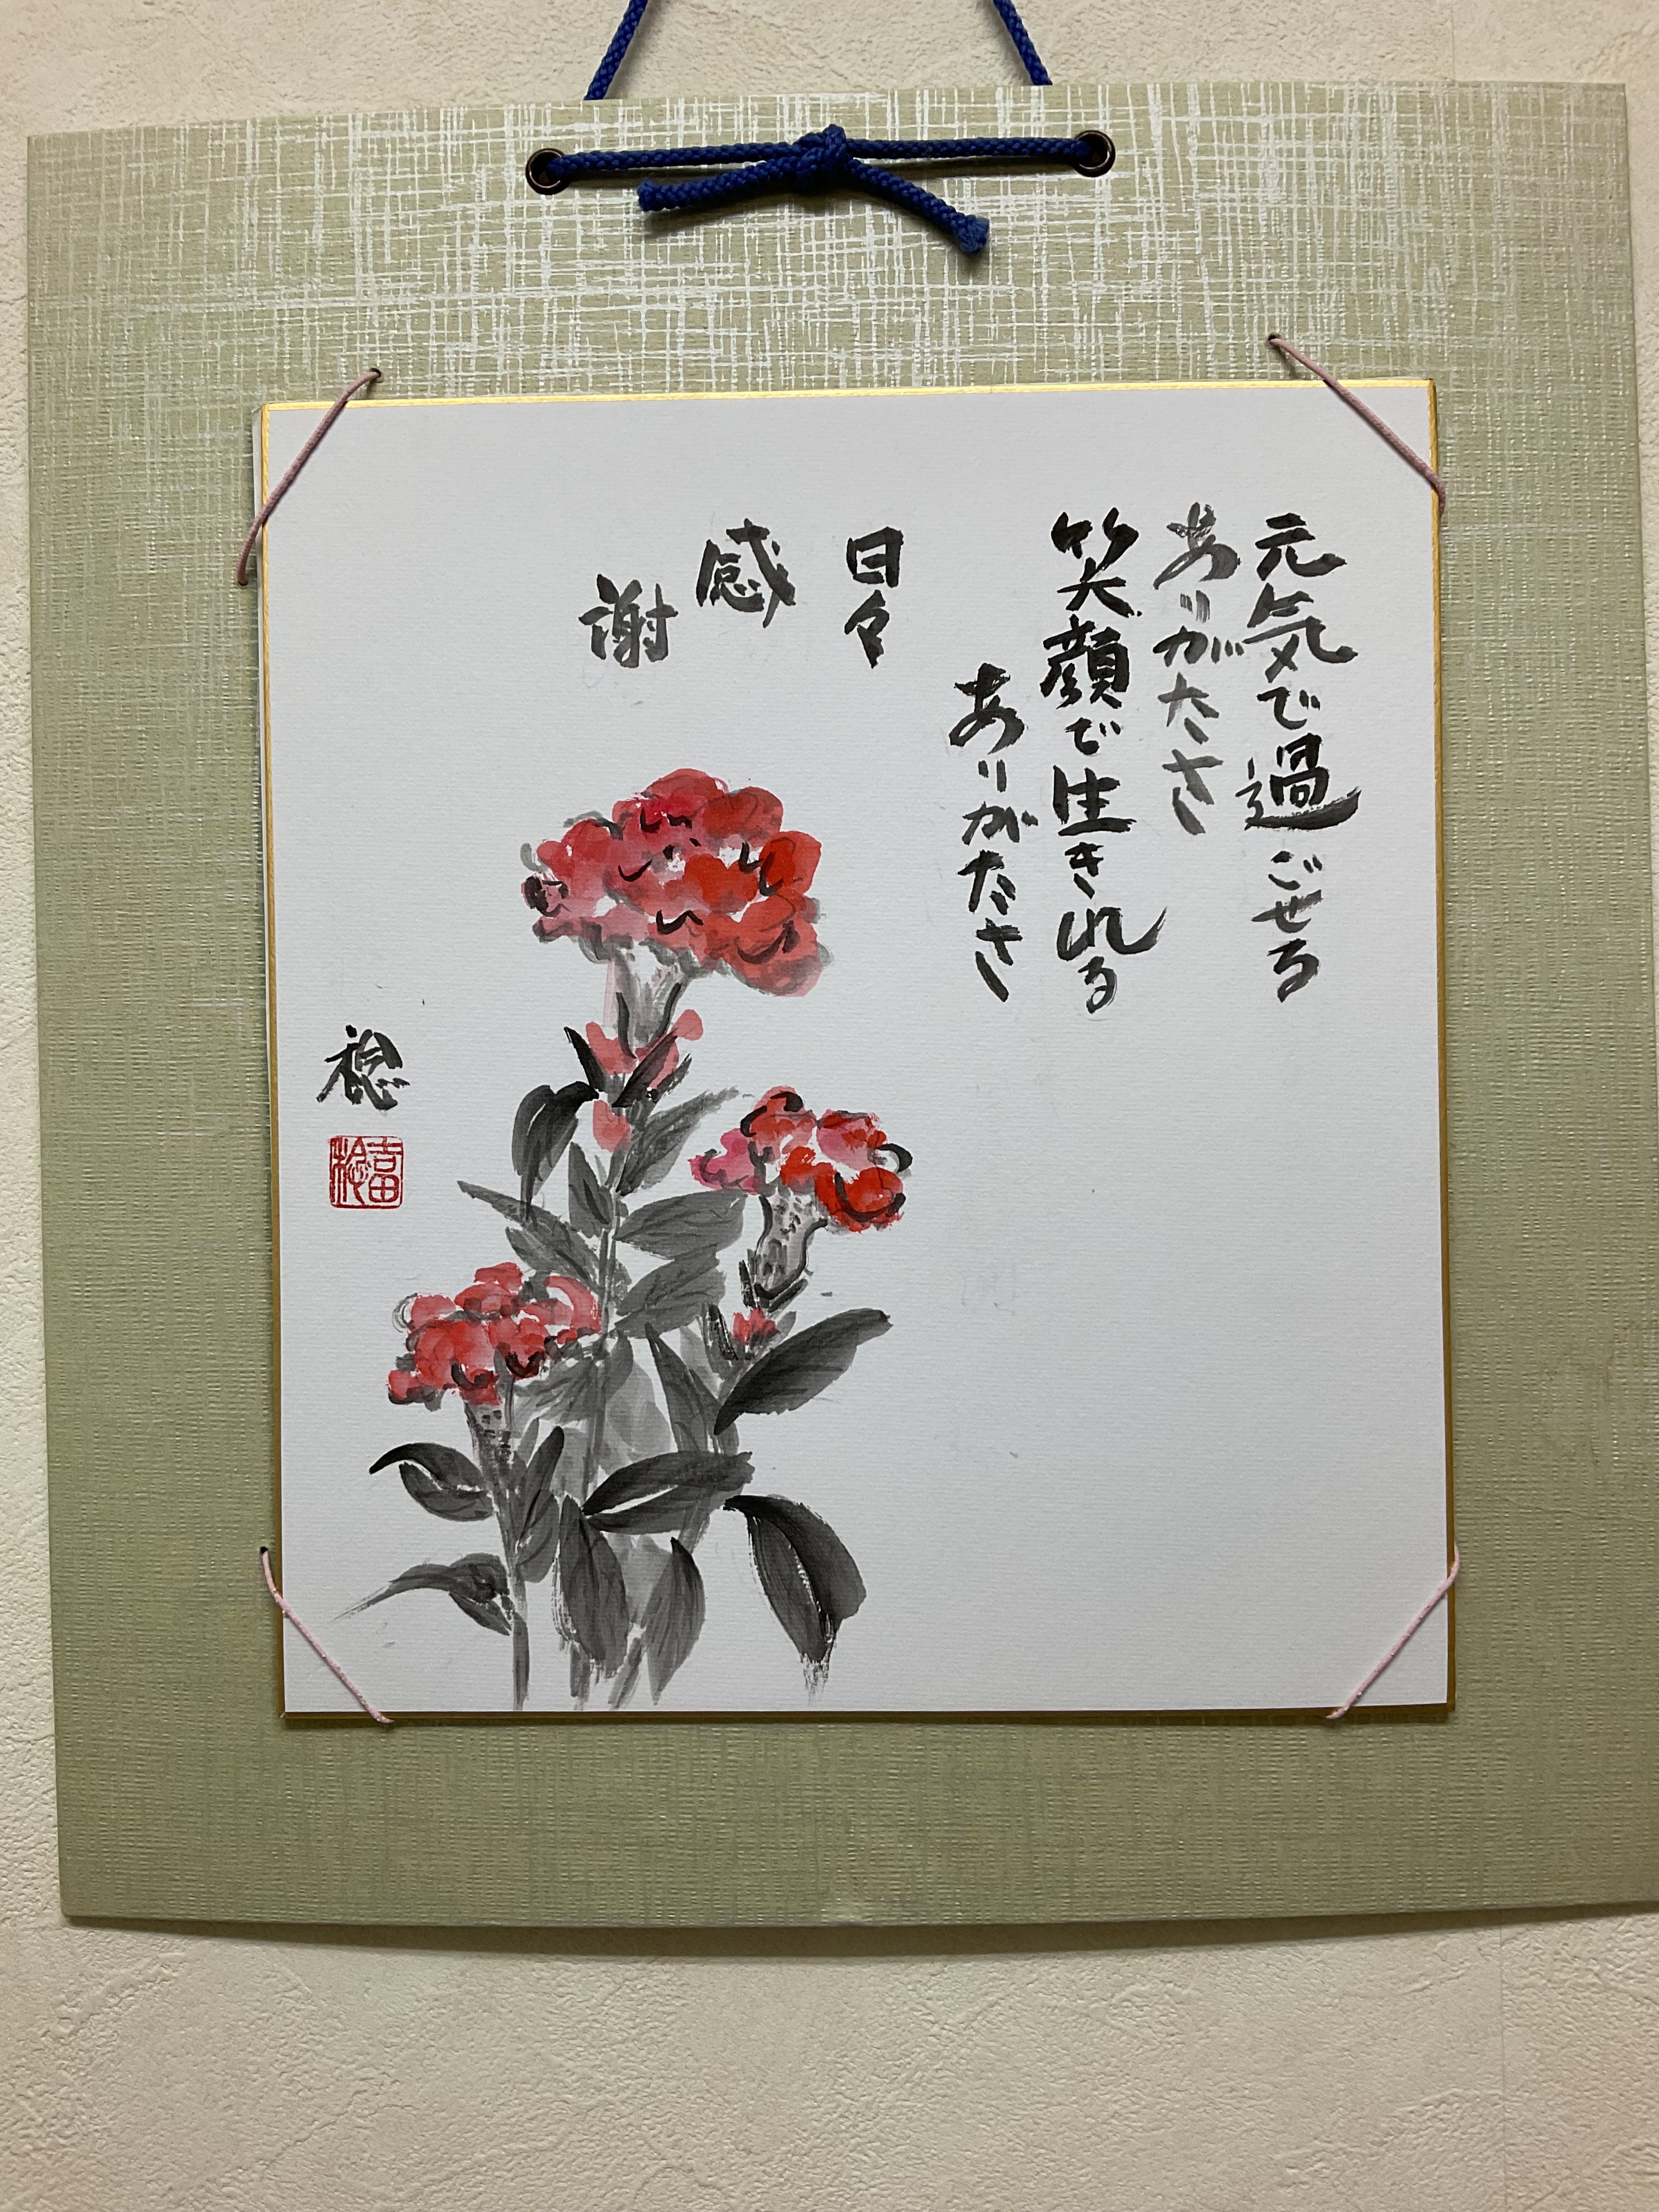 元気で過ごせる
ありがたさ
笑顔で生きれる
ありがたさ
日々
感
謝
稔
吉田
稔